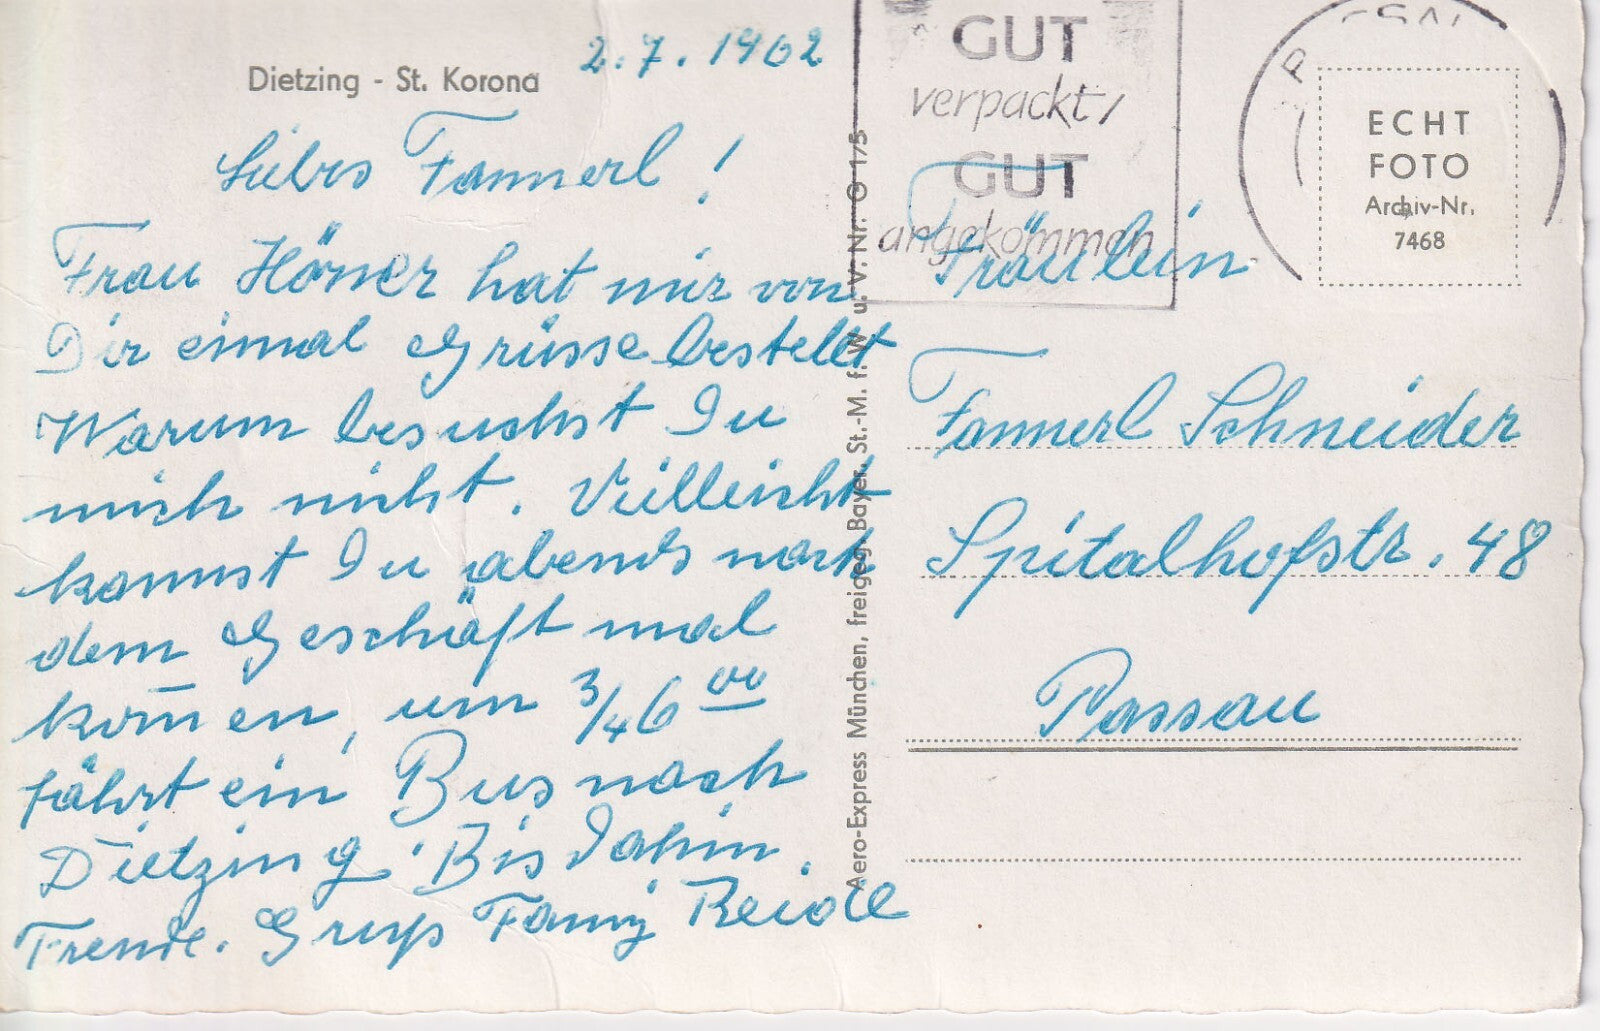 Dietzing - St. Korona
2.7.1962
Liebes Fannerl!
Frau Hörner hat mir von
Dir einmal Grüsse bestellt
Warum besuchst Du
mich nicht. Vielleicht
kannst Du abends nach
dem Geschäft mal
kom̄en, um 3/4 6 00
fährt ein Bus nach
Dietzing. Bis dahin.
Freudl. Gruß Fanny
Aero-Express München, freigeg. Bayer. St.-M. f. W. u. V. Nr. G 1/5
GUT
verpackt/
GUT
angekommen
ECHT
FOTO
Archiv-Nr.
7468
Fräulein
Fannerl Schneider
Spitalhofstr. 48
Passau